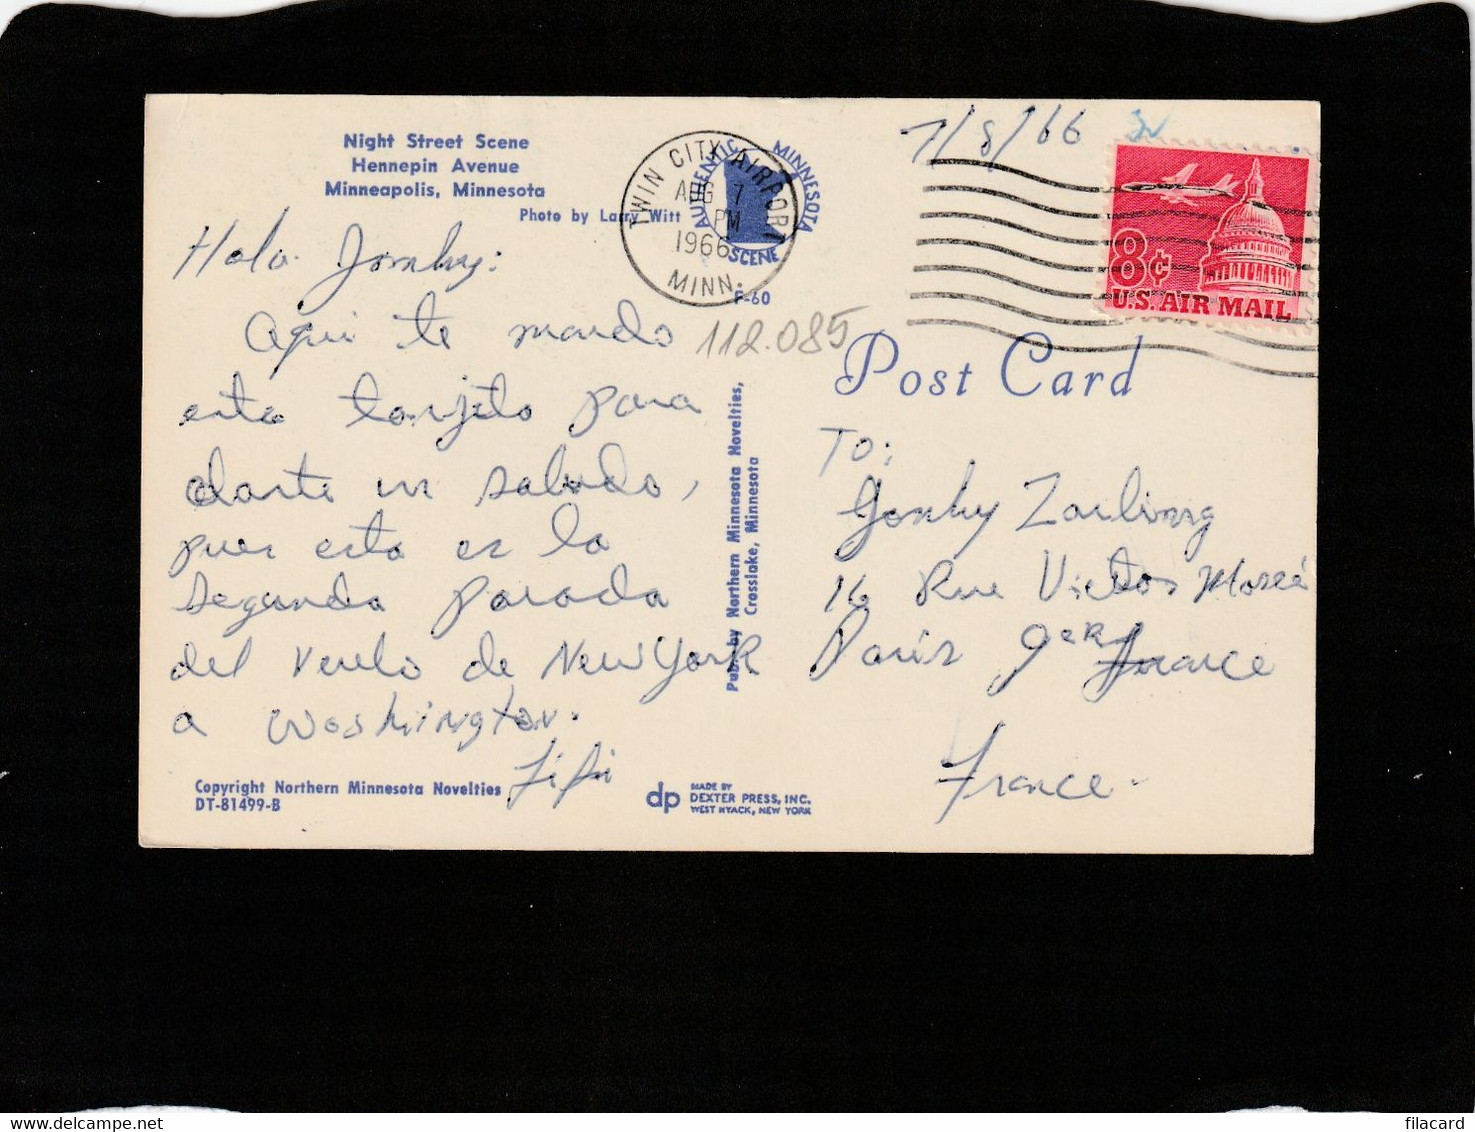 Night Street Scene
Hennepin Avenue
Minneapolis, Minnesota
Photo by Larry Witt
AUTHENTIC MINNESOTA
SCENE
F-60
TWIN CITY AIRPORT
AUG 7
PM
1966
MINN.
7/8/66
8¢
U.S. AIR MAIL
Hola Jonhy:
Aqui te mando
esta tarjeta para
darte un saludo,
pues esta es la
segunda parada
del vuelo de New York
a Washington.
Fifi
112.085
Post Card
TO:
Jonhy Zarling
16 Rue Victor Massé
Paris 9eR France
France.
Pub. by Northern Minnesota Novelties,
Crosslake, Minnesota
Copyright Northern Minnesota Novelties
DT-81499-B
dp MADE BY
DEXTER PRESS, INC.
WEST NYACK, NEW YORK
filacard